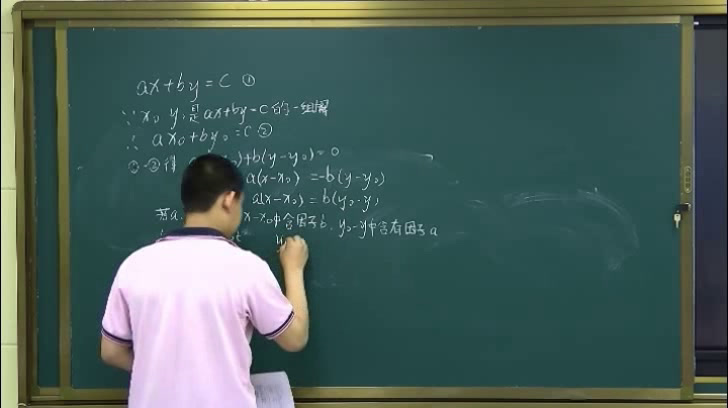 ax+by=C ①
∵ x₀ y₀是ax+by=C的一组解
∴ ax₀+by₀=C②
①-②得 )+b(y-y₀)=0
a(x-x₀) =-b(y-y₀)
a(x-x₀) = b(y₀-y)
若a x-x₀中含因子b, y₀-y中含有因子a